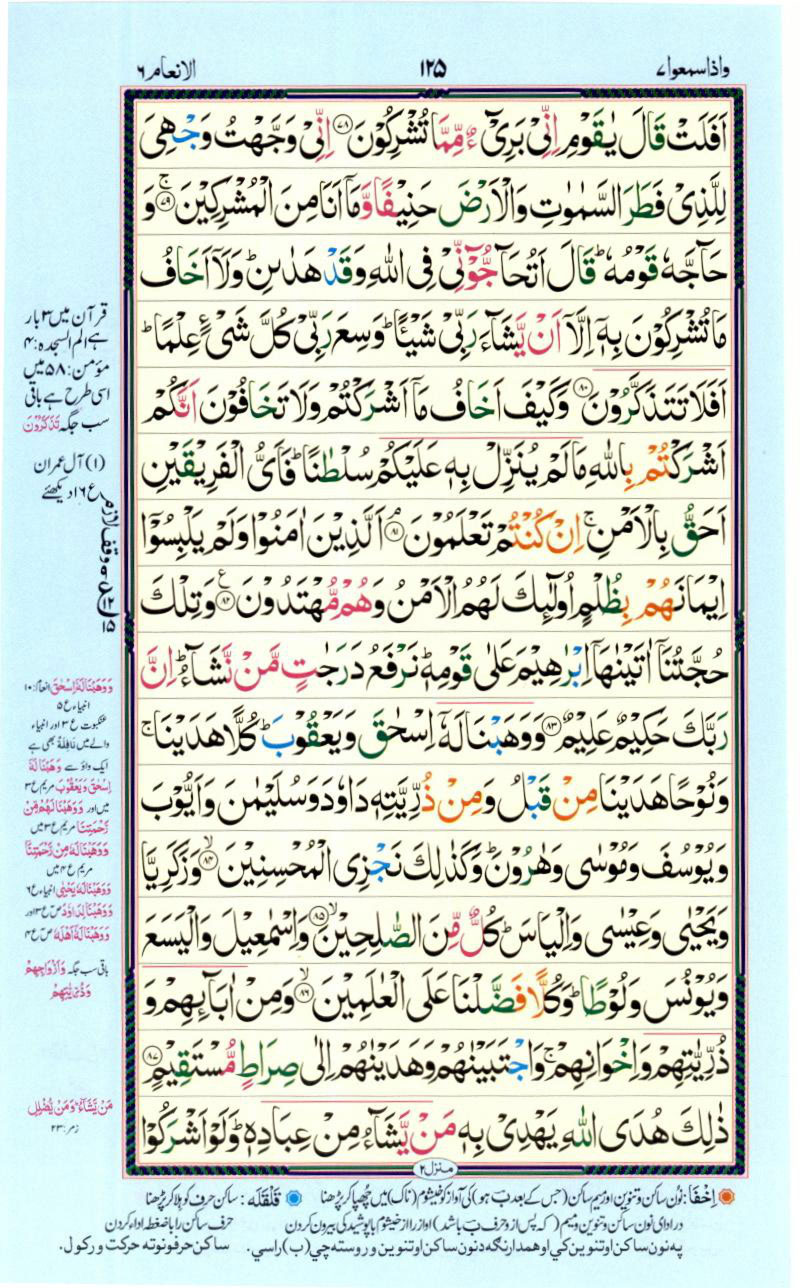 واذاسمعوا۷
۱۲۵
الانعام ۶
اَفَلَتْ قَالَ يٰقَوْمِ اِنِّىْ بَرِىْٓءٌ مِّمَّا تُشْرِكُوْنَ ﴿۷۸﴾ اِنِّىْ وَجَّهْتُ وَجْهِىَ
لِلَّذِىْ فَطَرَ السَّمٰوٰتِ وَالْاَرْضَ حَنِيْفًا وَّمَاۤ اَنَا مِنَ الْمُشْرِكِيْنَ ۚ﴿۷۹﴾ وَ
حَآجَّهٗ قَوْمُهٗ ؕ قَالَ اَتُحَآجُّوْٓنِّىْ فِى اللّٰهِ وَقَدْ هَدٰٮنِ ؕ وَلَاۤ اَخَافُ
مَا تُشْرِكُوْنَ بِهٖۤ اِلَّاۤ اَنْ يَّشَآءَ رَبِّىْ شَيْـًٔـا ؕ وَسِعَ رَبِّىْ كُلَّ شَىْءٍ عِلْمًا ؕ
اَفَلَا تَتَذَكَّرُوْنَ ﴿۸۰﴾ وَكَيْفَ اَخَافُ مَاۤ اَشْرَكْتُمْ وَلَا تَخَافُوْنَ اَنَّكُمْ
اَشْرَكْتُمْ بِاللّٰهِ مَا لَمْ يُنَزِّلْ بِهٖ عَلَيْكُمْ سُلْطٰنًا ؕ فَاَىُّ الْفَرِيْقَيْنِ
اَحَقُّ بِالْاَمْنِ ۚ اِنْ كُنْتُمْ تَعْلَمُوْنَ ۘ﴿۸۱﴾ اَلَّذِيْنَ اٰمَنُوْا وَلَمْ يَلْبِسُوْۤا
اِيْمَانَهُمْ بِظُلْمٍ اُولٰٓئِكَ لَهُمُ الْاَمْنُ وَهُمْ مُّهْتَدُوْنَ ﴿۸۲﴾ وَتِلْكَ
حُجَّتُنَاۤ اٰتَيْنٰهَاۤ اِبْرٰهِيْمَ عَلٰى قَوْمِهٖ ؕ نَرْفَعُ دَرَجٰتٍ مَّنْ نَّشَآءُ ؕ اِنَّ
رَبَّكَ حَكِيْمٌ عَلِيْمٌ ﴿۸۳﴾ وَوَهَبْنَا لَهٗۤ اِسْحٰقَ وَيَعْقُوْبَ ؕ كُلًّا هَدَيْنَا ۚ
وَنُوْحًا هَدَيْنَا مِنْ قَبْلُ وَمِنْ ذُرِّيَّتِهٖ دَاوٗدَ وَسُلَيْمٰنَ وَاَيُّوْبَ
وَيُوْسُفَ وَمُوْسٰى وَهٰرُوْنَ ؕ وَكَذٰلِكَ نَجْزِى الْمُحْسِنِيْنَ ۙ﴿۸۴﴾ وَزَكَرِيَّا
وَيَحْيٰى وَعِيْسٰى وَاِلْيَاسَ ؕ كُلٌّ مِّنَ الصّٰلِحِيْنَ ۙ﴿۸۵﴾ وَاِسْمٰعِيْلَ وَالْيَسَعَ
وَيُوْنُسَ وَلُوْطًا ؕ وَكُلًّا فَضَّلْنَا عَلَى الْعٰلَمِيْنَ ۙ﴿۸۶﴾ وَمِنْ اٰبَآئِهِمْ وَ
ذُرِّيّٰتِهِمْ وَاِخْوَانِهِمْ ۚ وَاجْتَبَيْنٰهُمْ وَهَدَيْنٰهُمْ اِلٰى صِرَاطٍ مُّسْتَقِيْمٍ ﴿۸۷﴾
ذٰلِكَ هُدَى اللّٰهِ يَهْدِىْ بِهٖ مَنْ يَّشَآءُ مِنْ عِبَادِهٖ ؕ وَلَوْ اَشْرَكُوْا
منزل۲
قرآن میں ۳ بار
ہے الم السجدہ:۴
مؤمن:۵۸ میں
اسی طرح ہے باقی
سب جگہ تَذَكَّرُوْنَ
(۱) آل عمران
ع ۱۶ دیکھئے
وقف لازم
ع
۱۵
وَوَهَبْنَا لَهٗۤ اِسْحٰقَ انعام:۱۰
انبیاء ع ۵
عنکبوت ع ۳ اور انبیاء
والے میں نَافِلَةً بھی ہے
ایک واؤ سے وَهَبْنَا لَهٗۤ
اِسْحٰقَ وَيَعْقُوْبَ مریم ع ۳
میں اور وَوَهَبْنَا لَهُمْ مِّنْ
رَّحْمَتِنَا مریم ع ۳ میں
وَوَهَبْنَا لَهٗ مِنْ رَّحْمَتِنَاۤ
مریم ع ۴ میں
وَوَهَبْنَا لَهٗ يَحْيٰى انبیاء ع ۶
وَوَهَبْنَا لِدَاوٗدَ صٓ ع ۳ اور
وَوَهَبْنَا لَهٗۤ اَهْلَهٗ صٓ ع ۴
باقی سب جگہ وَاَزْوَاجِهِمْ
وَذُرِّيّٰتِهِمْ
مَنْ يَّشَآءُ ؕ وَمَنْ يُّضْلِلِ
زمر:۲۳
اِخْفَا: نون ساکن و تنوین اور میم ساکن (جس کے بعد بَ ہو) کی آواز کو خیشوم (ناک) میں چھپا کر پڑھنا
قَلْقَلَه: ساکن حرف کو ہلا کر پڑھنا
در ادای نون ساکن و تنوین و میم (که پس از و حرف بَ باشد) آواز را از خیشوم با پوشیدگی بیرون کردن
حرف ساکن را با ضغطه ادا کردن
په نون ساکن او تنوین کې او همدارنګه د نون ساکن او تنوین وروسته چې (ب) راسي.
ساکن حرفونو ته حرکت ورکول.